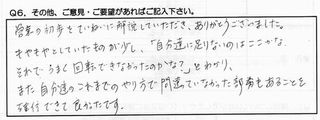 Q6. その他、ご意見・ご要望があればご記入下さい。
営業の初歩をていねいに解説していただき、ありがとうございました。
もやもやとしていたものが少し、「自分達に足りないのはここかな
それでうまく回転できなかったのかな?」とわかり、
また自分達のこれまでのやり方で間違っていなかった部分もあることを
確信できて良かったです。